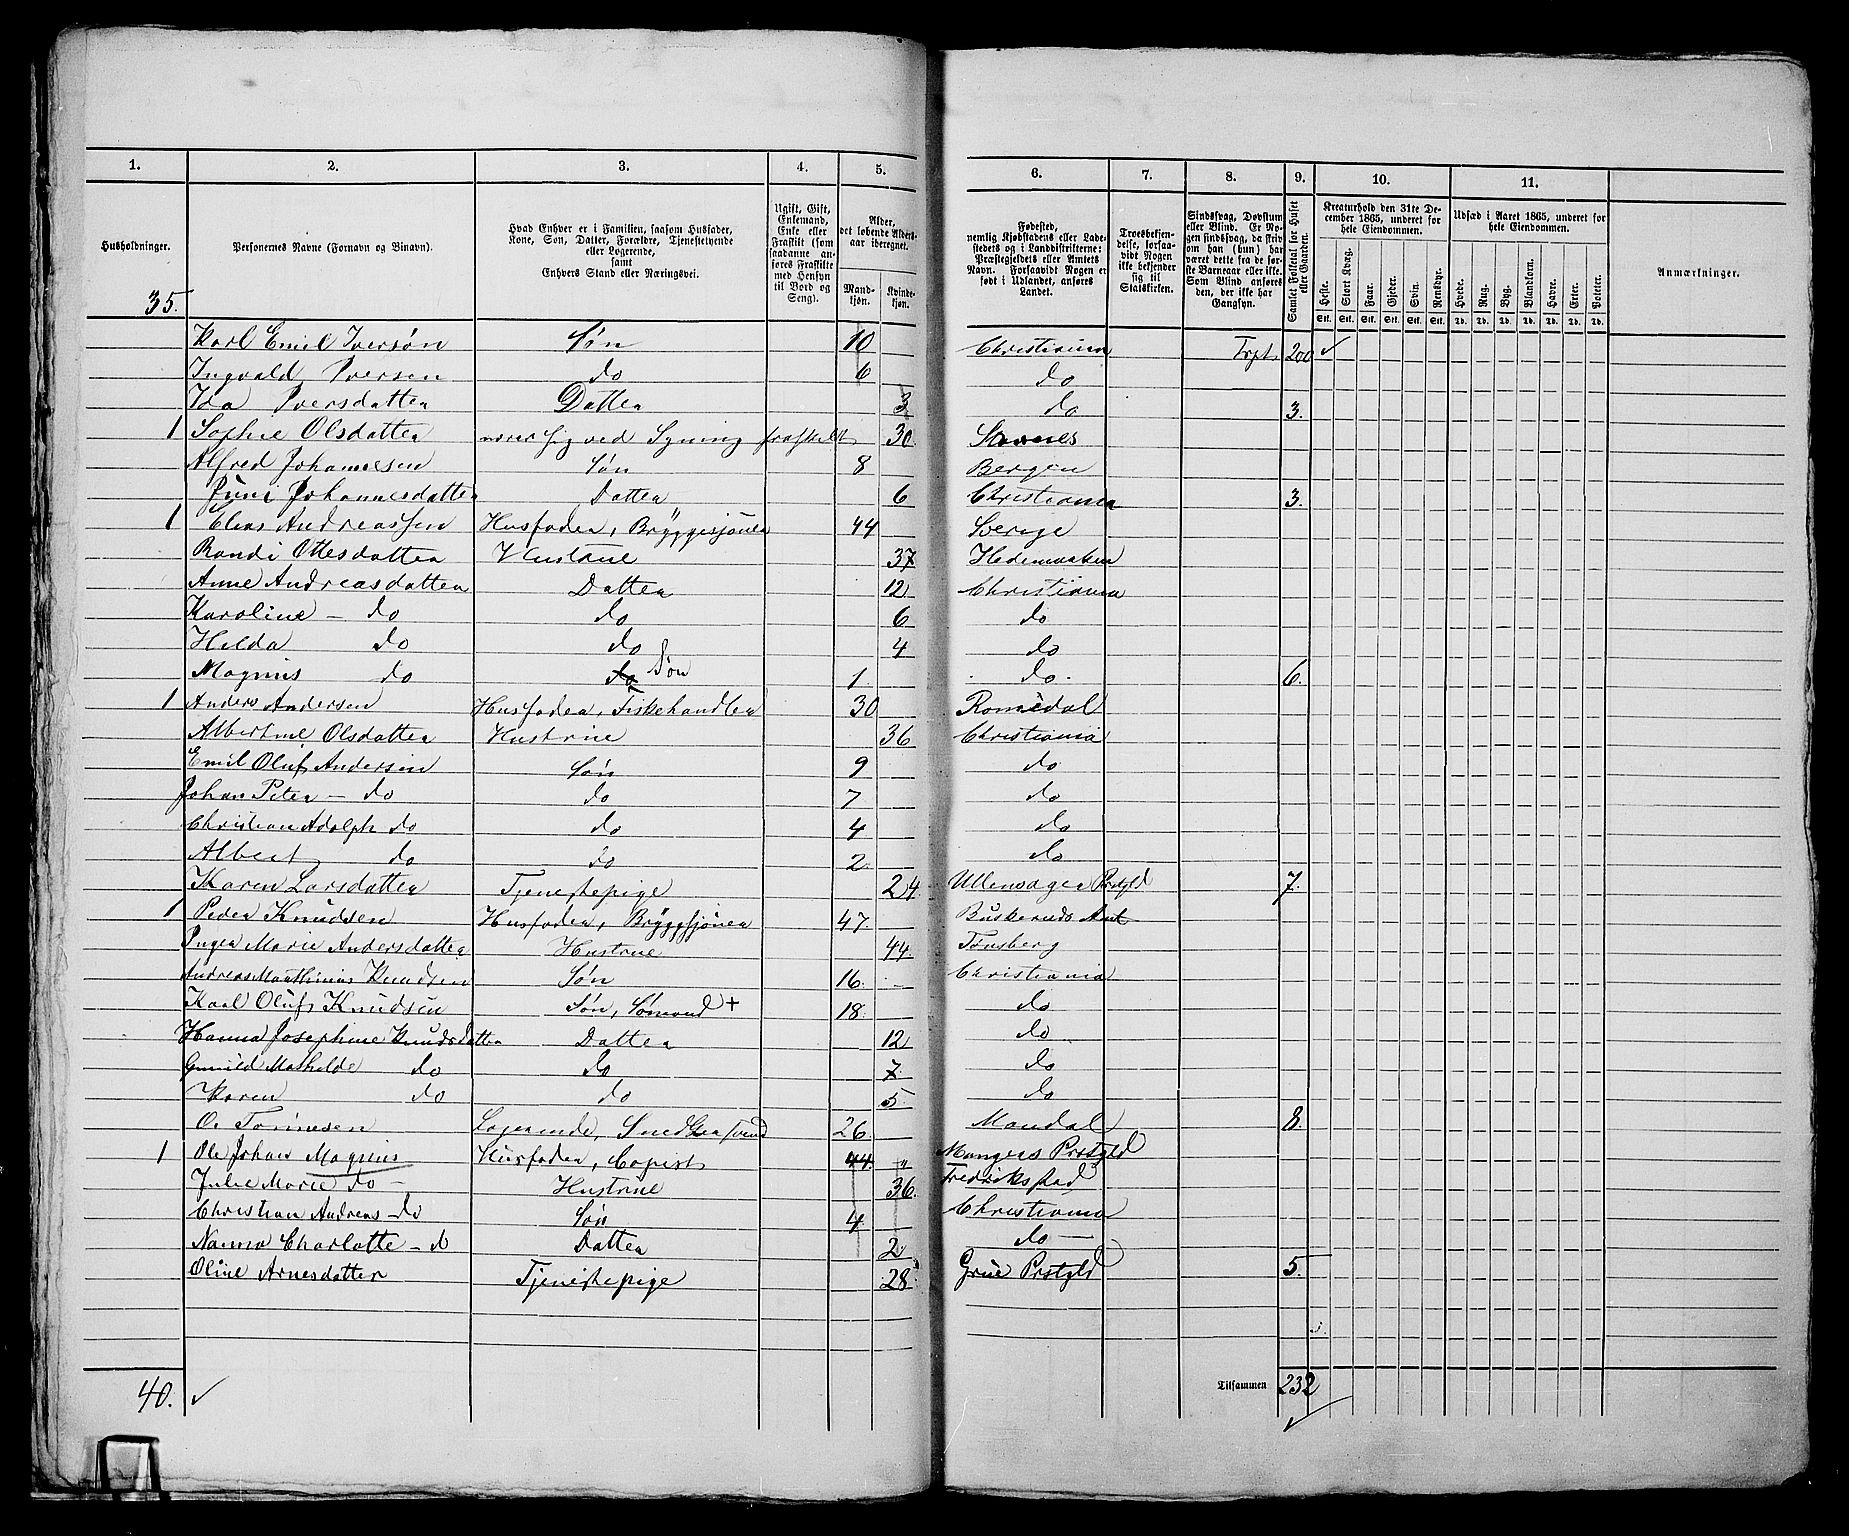 1. 2. 3. 4. 5. 6. 7. 8. 9. 10. 11.
Husholdninger.
Personernes Navne (Fornavn og Binavn).
Hvad Enhver er i Familien, saasom Husfader, Kone, Søn, Datter, Forældre, Tjenestetyende eller Logerende, samt Enhvers Stand eller Næringsvei.
Ugift, Gift, Enkemand, Enke eller Fraskilt (som saadanne anføres Fraskilte med Hensyn til Bord og Seng).
Alder, det løbende Aldersaar iberegnet.
Mandkjøn. Kvindekjøn.
Fødested, nemlig Kjøbstadens eller Ladestedets og i Landdistrikterne: Præstegjeldets eller Amtets Navn. Forsaavidt Nogen er født i Udlandet, anføres Landet.
Troesbekjendelse, forsaavidt Nogen ikke bekjender sig til Statskirken.
Sindssvag, Døvstum eller Blind. Er Nogen sindssvag, da skrives om han (hun) har været dette fra de første Barneaar eller ikke. Som Blind anføres den, der ikke har Gangsyn.
Samlet Folketal for Huset eller Gaarden.
Kreaturhold den 31te December 1865, underet for hele Eiendommen.
Heste. Stort Kvæg. Faar. Gjeder. Svin. Rensdyr.
Stk. Stk. Stk. Stk. Stk. Stk.
Udsæd i Aaret 1865, underet for hele Eiendommen.
Hvede. Rug. Byg. Blandkorn. Havre. Erter. Poteter.
Td. Td. Td. Td. Td. Td. Td.
Anmærkninger.
35.
Karl Emil Iversøn Søn 10 Christiania Trpt 200 ✓
Ingvald Iversen do 6 do
Ida Iversdatter Datter 3 do 3.
1 Sophie Olsdatter nærer sig ved Syning fraskilt 30.
Alfred Johannesen Søn 8 Bergen
Juni Johannesdatter Datter 6 Christiania 3.
1 Elias Andreassen Husfader, Bryggesjouer 44 Sverige
Randi Ottesdatter Hustrue 37 Hedemarken
Anne Andreasdatter Datter 12 Christiania
Karoline - do do 6 do
Hilda do do 4 do
Magnus do do Søn 1. do. 6.
1 Anders Andersen Husfader, Fiskehandler 30 Romedal
Albertine Olsdatter Hustrue 36 Christiania
Emil Oluf Andersen Søn 9 do
Johan Peter - do do 7 do
Christian Adolph do do 4 do
Albert do do 2 do
Karen Larsdatter Tjenestepige 24 Ullensager Prstgld 7.
1 Peder Knudsen Husfader, Bryggesjouer 47. Buskeruds Amt
Inger Marie Andersdatter Hustrue 44 Tønsberg
Andreas Mathinius Knudsen Søn 16. Christiania
Karl Oluf Knudsen Søn, Sømand + 18. do
Hanna Josephine Knudsdatter Datter 12 do
Gunild Mathilde do do 7. do
Karen do do 5. do
O. Tønnesen Logerende, 26. Mandal 8.
1 Ole Johan Magnus Husfader, Copist 44. " Mangers Prstgld
Julie Marie do - Hustrue 36. Fredrikstad
Christian Andreas - do Søn 4 Christiania
Nanna Charlotte - do Datter 2 do -
Oline Arnesdatter Tjenestepige 28. Grue Prstgld 5.
40. ✓ Tilsammen 232 ✓